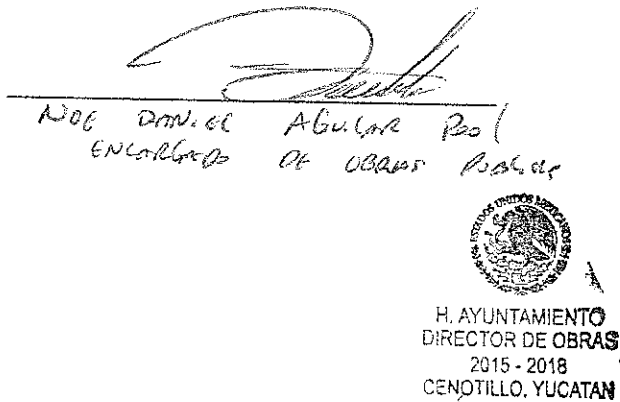 NOE DANIEL AGUILAR POOL
ENCARGADO DE OBRAS PUBLICAS
ESTADOS UNIDOS MEXICANOS
H. AYUNTAMIENTO
DIRECTOR DE OBRAS
2015 - 2018
CENOTILLO, YUCATAN